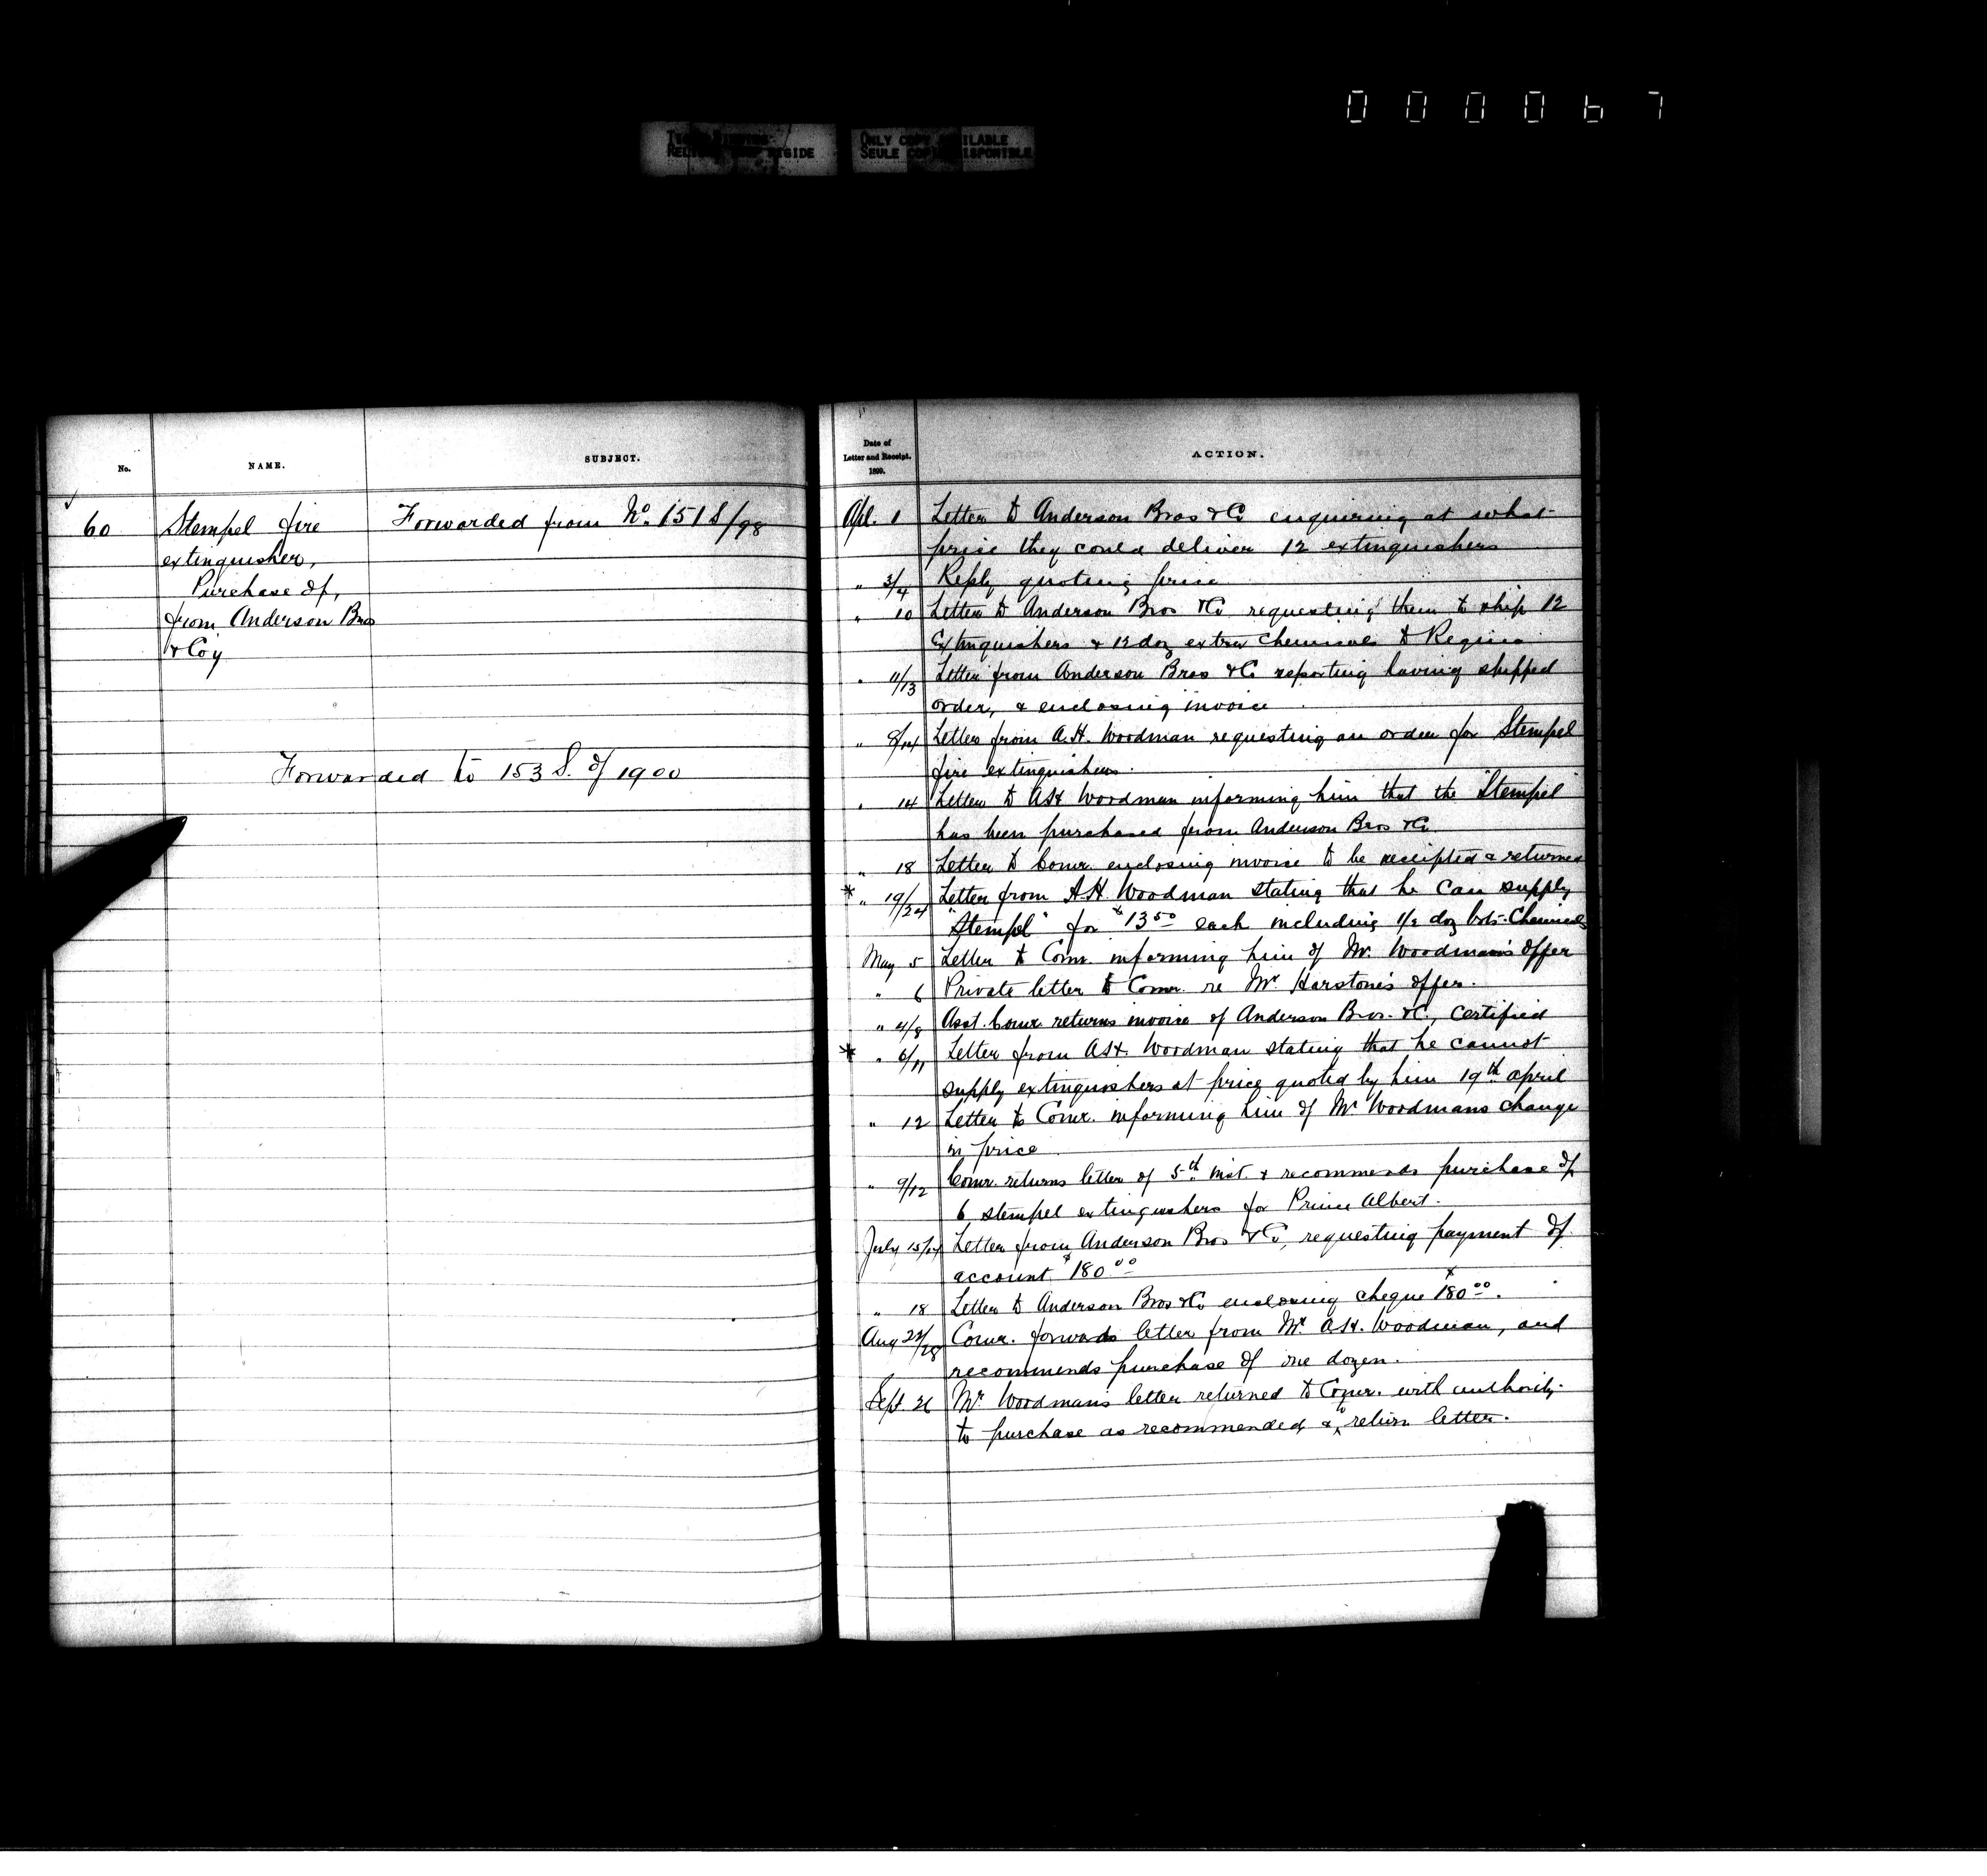 000067
ONLY COPY AVAILABLE
SEULE COPIE DISPONIBLE
No.
NAME.
SUBJECT.
60
Stempel fire
extinguisher,
Purchase of,
from Anderson Bros
& Coy
Forwarded from No. 151 S/98
Forwarded to 153 S. of 1900
Date of
Letter and Receipt.
1899.
ACTION.
Apl. 1 Letter to Anderson Bros & Co enquiring at what
price they could deliver 12 extinguishers
" 3/4 Reply quoting price
" 10 Letter to Anderson Bros & Co requesting them to ship 12
Extinguishers & 12 doz extra Chemicals to Regina
" 11/13 Letter from Anderson Bros & Co reporting having shipped
order, & enclosing invoice
" 9/14 Letter from A.H. Woodman requesting an order for Stempel
fire extinguishers.
" 14 Letter to AH Woodman informing him that the "Stempel"
has been purchased from Anderson Bros & Co
" 18 Letter to Comr. enclosing invoice to be receipted & returned
* " 19/24 Letter from A.H. Woodman stating that he can supply
"Stempel" for $13.50 each including 1/2 doz bots. Chemicals
May 5 Letter to Comr. informing him of Mr. Woodman's offer
" 6 Private letter to Comr. re Mr. Harstone's offer.
" 4/8 Asst. Comr returns invoice of Anderson Bros. & Co., certified
* " 6/11 Letter from AH. Woodman stating that he cannot
supply extinguishers at price quoted by him 19th April
" 12 Letter to Comr. informing him of Mr Woodmans change
in price
" 9/12 Comr. returns letter of 5th inst. & recommends purchase of
6 stempel extinguishers for Prince Albert.
July 15/17 Letter from Anderson Bros & Co, requesting payment of
account $180.00
" 18 Letter to Anderson Bros & Co enclosing cheque $180.00.
Aug 23/28 Comr. forwards letter from Mr. AH. Woodman, and
recommends purchase of one dozen.
Sept. 26 Mr Woodman's letter returned to Comr. with authority
to purchase as recommended, & return letter.